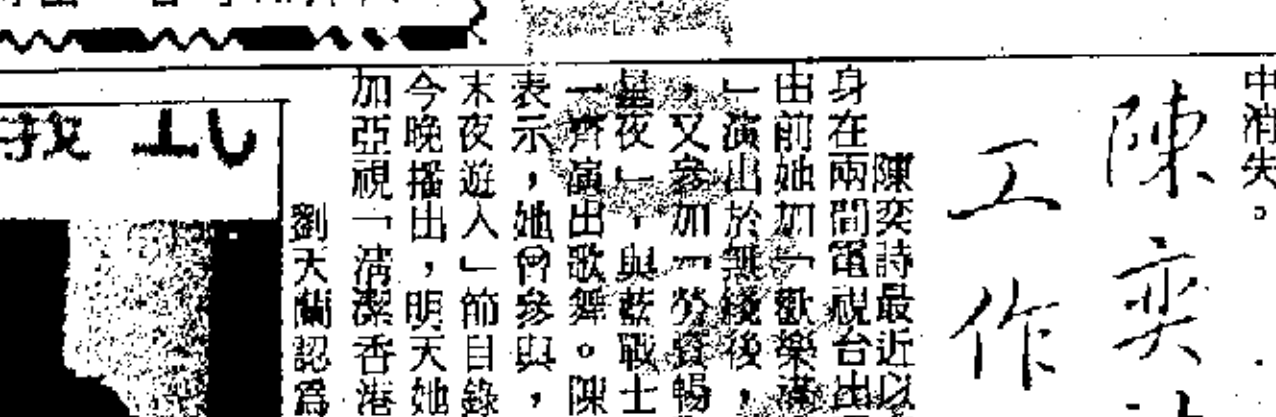 中消失。
陳奕
工作
陳奕詩最近以
身在兩間電視台出
由前她加「歡樂滿
」演出於無綫後，
，又參加「勞資暢
星夜」，與藍戰士
一齊演出歌舞。陳
表示，她會參與，
末夜遊人」節目錄
今晚播出，明天她
加亞視「清潔香港
劉天蘭認爲